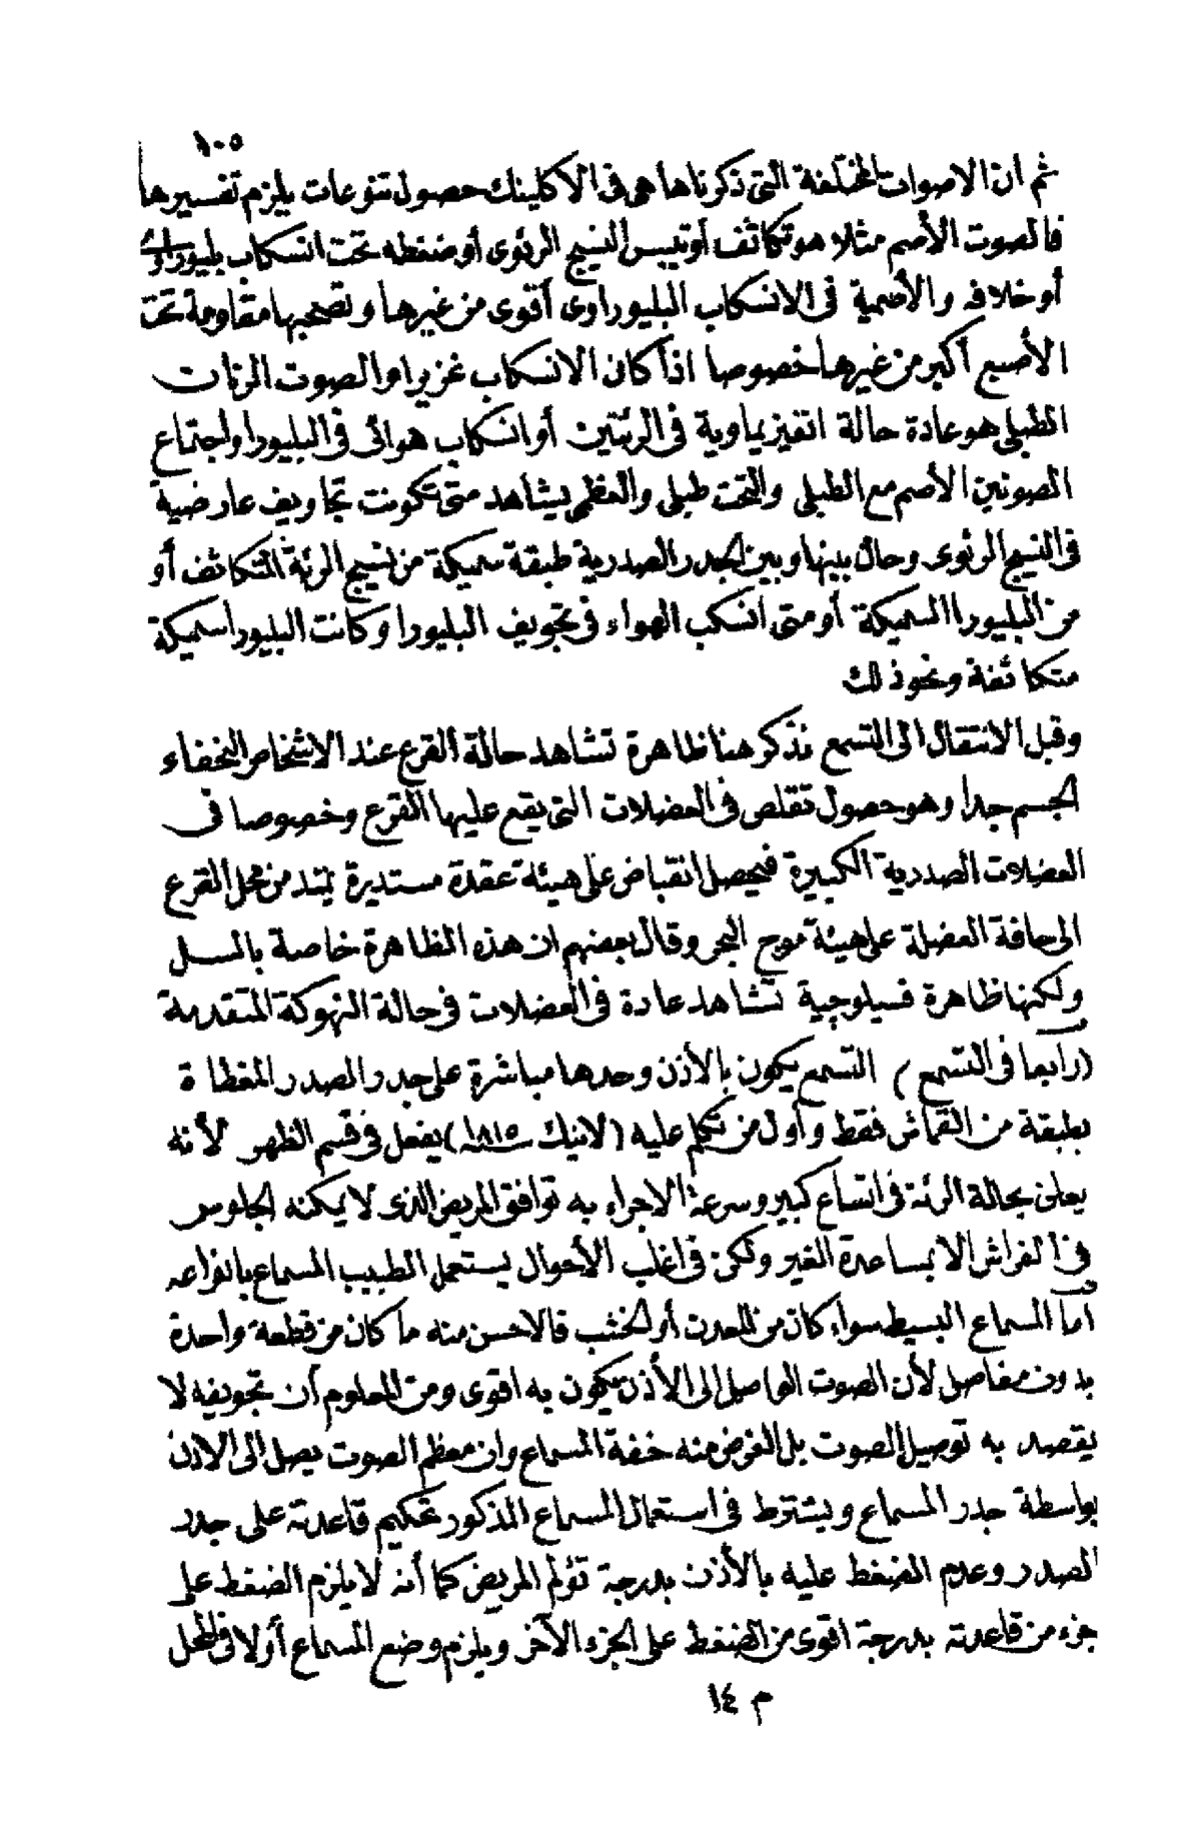 ١٠٥
ثم ان الاصوات المختلفة التى ذكرناها هى فى الاكلينك حصول تنوعات يلزم تفسيرها
فالصوت الأصم مثلا هو تكاثف أو تيبس النسيج الرئوى أو ضغطه تحت انسكاب بليوراوى
أو خلافه والأصمية فى الانسكاب البليوراوى أقوى من غيرها وتصحبها مقاومة تحت
الأصبع أكبر من غيرها خصوصا اذا كان الانسكاب غزيرا والصوت الرنات
الطبلى هو عادة حالة انفيزيماوية فى الرئتين أو انسكاب هوائى فى البليورا واجتماع
الصوتين الأصم مع الطبلى والتحت طبلى والعظمى يشاهد متى تكونت تجاويف عارضية
فى النسيج الرئوى وحال بينها وبين الجدر الصدرية طبقة سميكة من نسيج الرئة المتكاثف أو
من البليورا السميكة أو متى انسكب الهواء فى تجويف البليورا وكانت البليورا سميكة
متكاثفة ونحو ذلك
وقبل الانتقال الى التسمع نذكر هنا ظاهرة تشاهد حالة القرع عند الاشخاص النخفاء
الجسم جدا وهو حصول تقلص فى العضلات التى يقع عليها القرع وخصوصا فى
العضلات الصدرية الكبيرة فيحصل انقباض على هيئة عقدة مستديرة يمتد من محل القرع
الى حافة العضلة على هيئة موج البحر وقال بعضهم ان هذه الظاهرة خاصة بالسل
ولكنها ظاهرة فسيلوجية تشاهد عادة فى العضلات فى حالة النهوكة المتقدمة
(رابعا فى التسمع) التسمع يكون بالأذن وحدها مباشرة على جدر الصدر المغطاة
بطبقة من القماش فقط وأول من تكلم عليه (لانيك سـ١٨١٥ـنة) يفعل فى قسم الظهر لأنه
يعلن بحالة الرئة فى اتساع كبير وسرعة الاجراء به توافق المريض الذى لا يمكنه الجلوس
فى الفراش الا بمساعدة الغير ولكن فى اغلب الأحوال يستعمل الطبيب المسماع بانواعه
أما المسماع البسيط سواء كان من المعدن أو الخشب فالاحسن منه ما كان من قطعة واحدة
بدون مفاصل لأن الصوت الواصل الى الأذن يكون به اقوى ومن المعلوم أن تجويفه لا
يقصد به توصيل الصوت بل الغرض منه خفة المسماع وان معظم الصوت يصل الى الاذن
بواسطة جدر المسماع ويشترط فى استعمال المسماع المذكور تحكيم قاعدته على جدر
الصدر وعدم الضغط عليه بالأذن بدرجة تؤلم المريض كما أنه لا يلزم الضغط على
جزء من قاعدته بدرجة اقوى من الضغط على الجزء الآخر ويلزم وضع المسماع أولا فى المحل
م ١٤